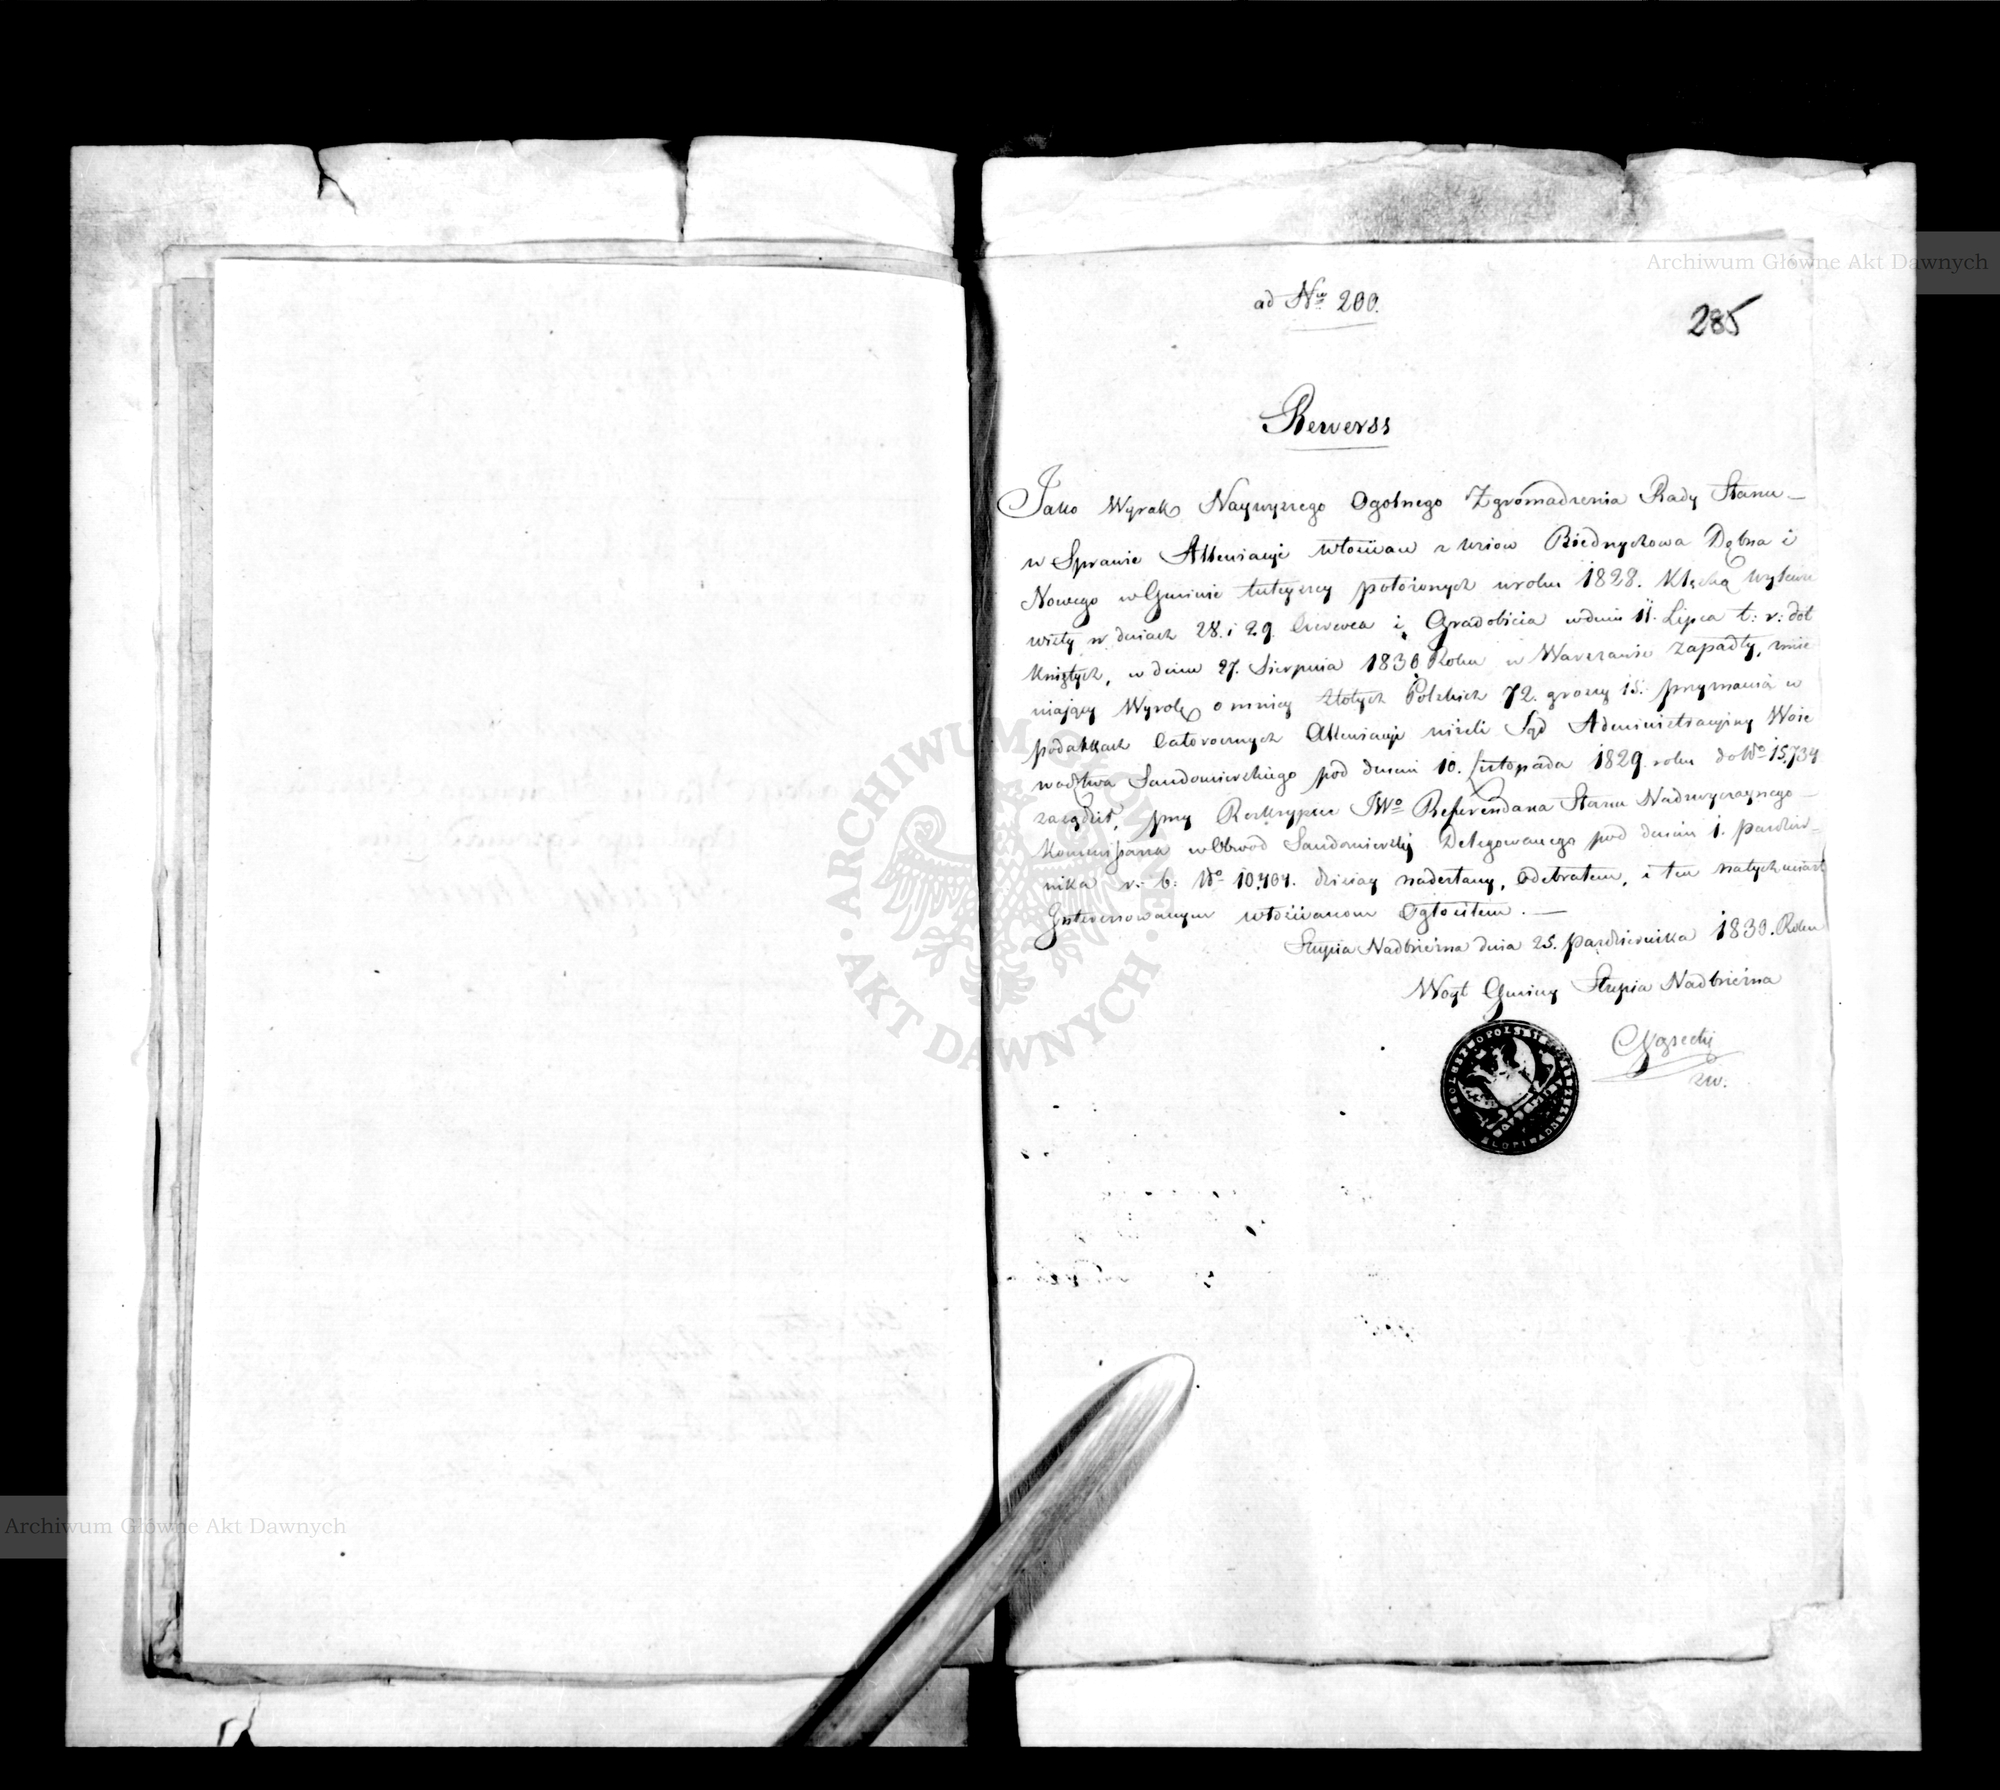 ad Nro 200.
285
Rewerss
Jako Wyrok Naywyższego Ogolnego Zgromadzenia Rady Stanu
w Sprawie Allewiacyi włościan z wsiow Biednychowa Dębna i
Nowego w Gminie tuteyszey położonych w roku 1828. Klęską wylewu
wisły w dniach 28. i 29. Czerwca i Gradobicia w dniu 11. Lipca t: r: dot
kniętych, w dniu 27. Sierpnia 1830 Roku w Warszawie zapadły, zmie
niający Wyrok o mniey Złotych Polskich 72. groszy 15. przyznania w
podatkach Całorocznych Allewiacyi niżeli Sąd Administracyiny Woie
wodztwa Sandomierskiego pod dniem 10. Listopada 1829. roku do No 15,734
zasądził, przy Reskrypcie JWo Referendarza Stanu Nadzwyczaynego
Kommissarza w Obwod Sandomierski Delegowanego pod dniem 1. Pazdzier-
nika r: b: No 10,404. dzisiay nadesłany, Odebrałem, i ten natychmiast
Jnteressowanym włościanom Ogłosiłem. —
Słupia Nadbrzeżna dnia 25. Pazdziernika 1830. Roku
Woyt Gminy Słupia Nadbrzeżna
zw.
KROLESTWO POLSKIE
ARCHIWUM GŁÓWNE
AKT DAWNYCH
Archiwum Główne Akt Dawnych
Archiwum Główne Akt Dawnych